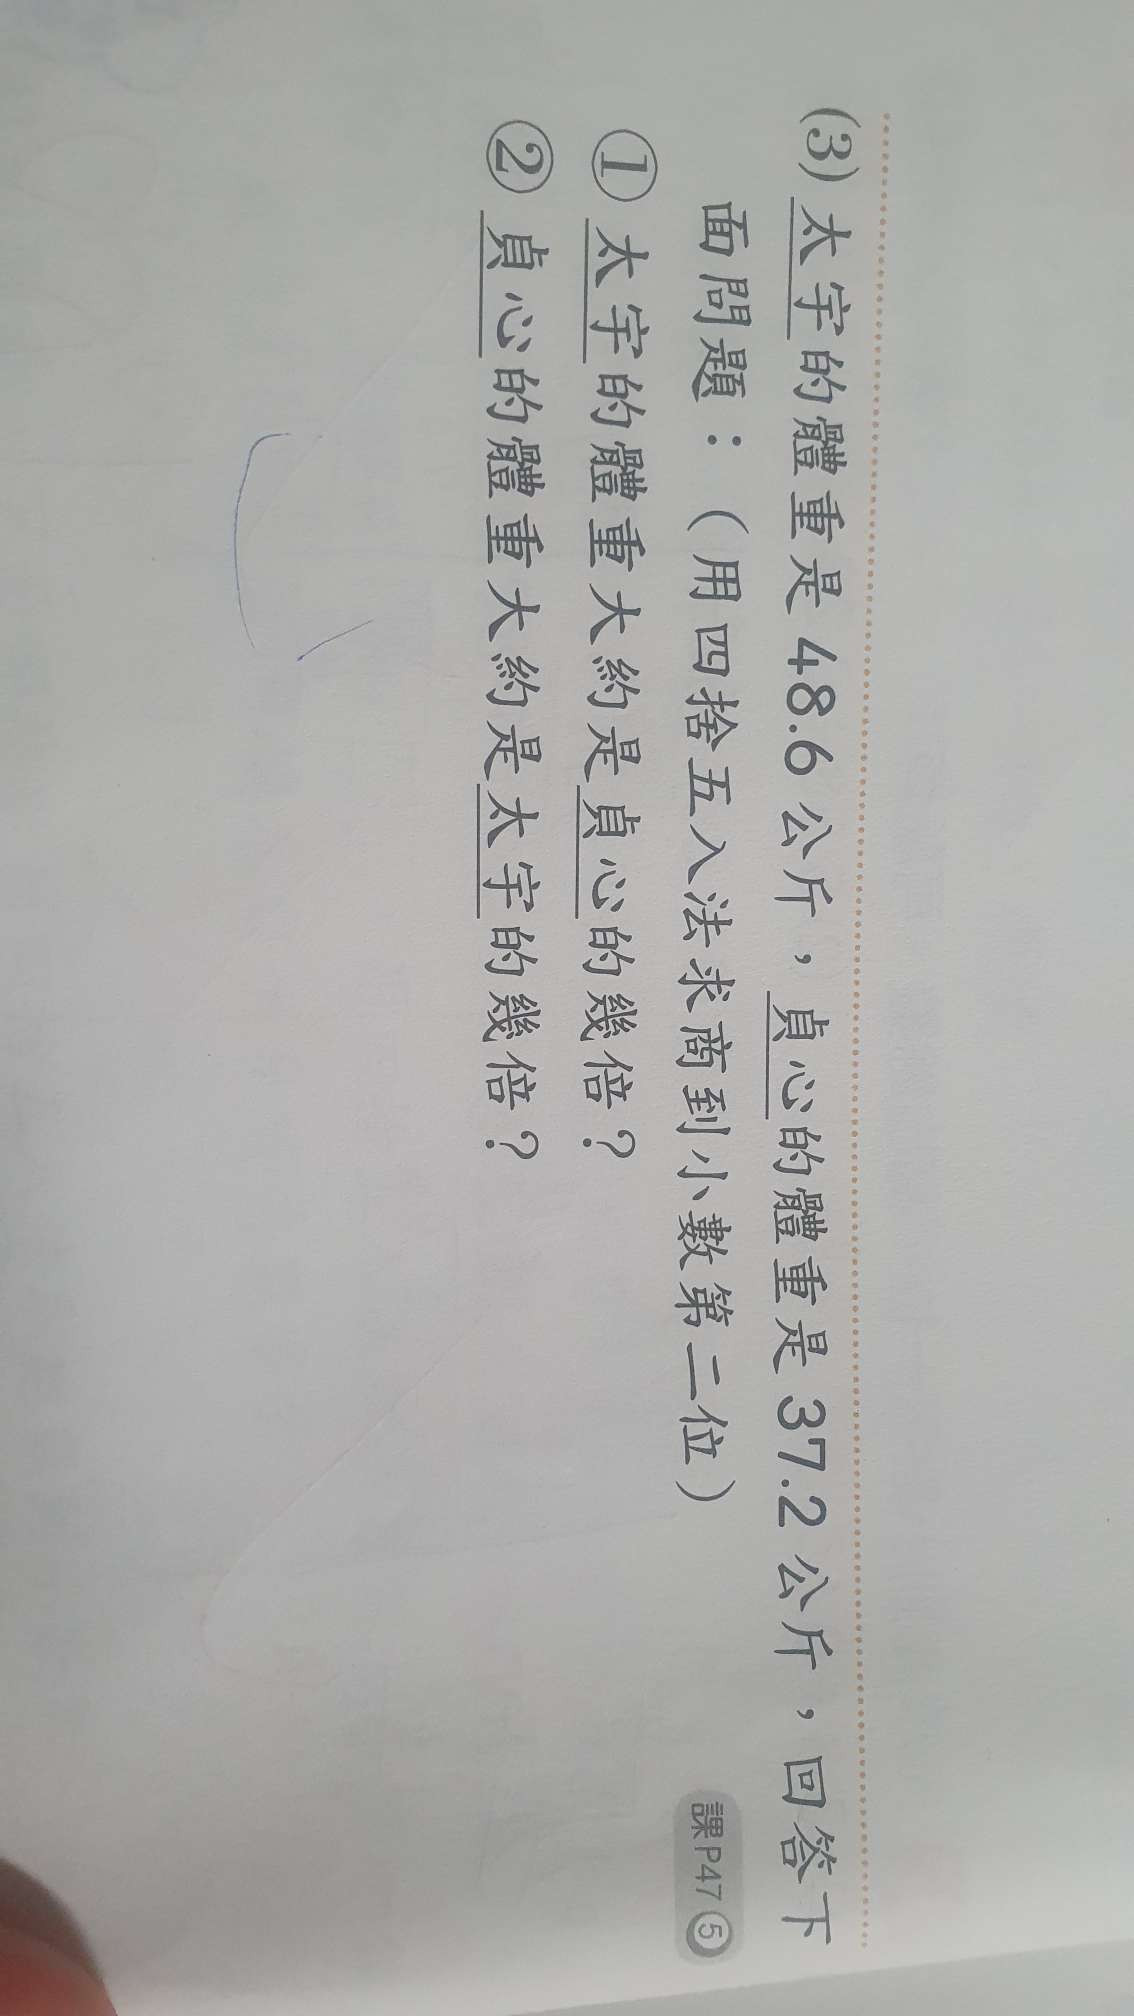 (3) 太宇的體重是 48.6 公斤，貞心的體重是 37.2 公斤，回答下
面問題：（用四捨五入法求商到小數第二位）
課P47⑤
① 太宇的體重大約是貞心的幾倍？
② 貞心的體重大約是太宇的幾倍？